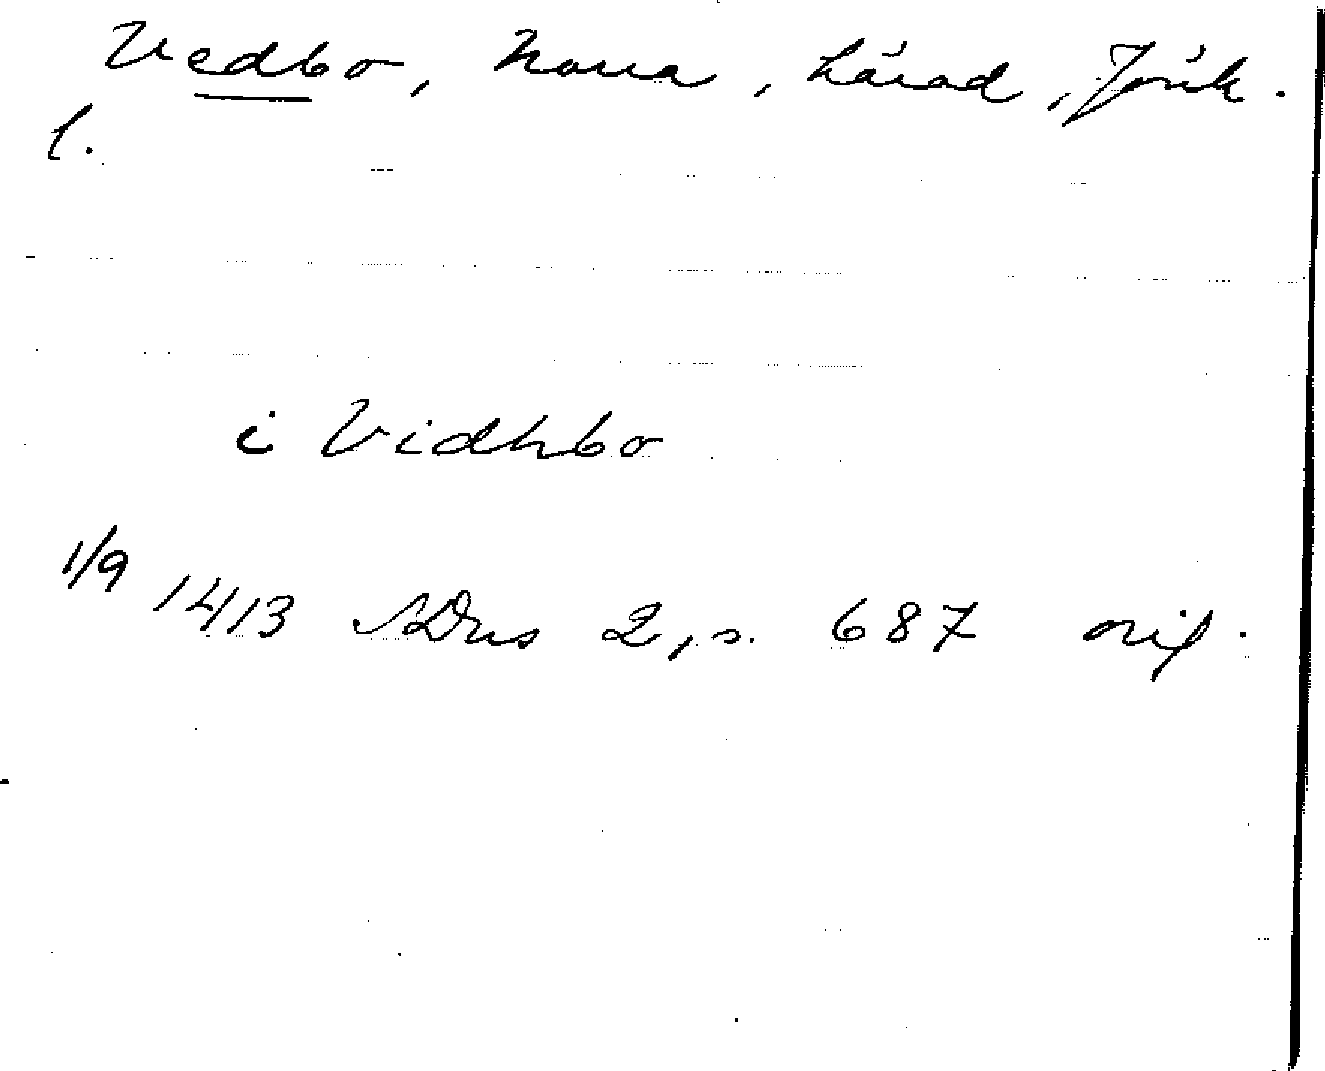 Vedbo, Norra, härad, Jönk.
l.
i Vidhbo
1/9 1413 SDns 2, s. 687 orig.